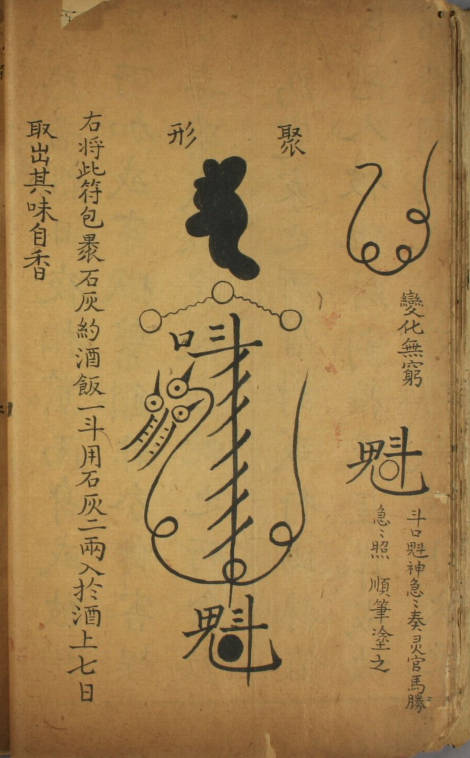 變化無窮
魁
斗口魁神急〻奏灵官馬勝
急〻照 順筆塗之
聚形
魁
右将此符包褁石灰約酒飯一斗用石灰二兩入於酒上七日
取出其味自香